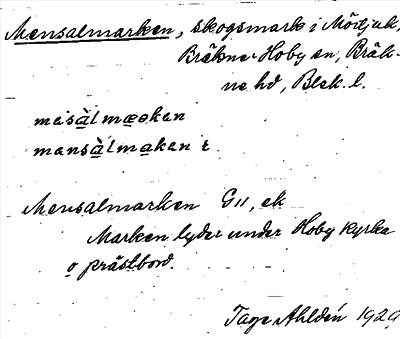 Mensalmarken, skogsmark i Mörtjuk,
Bräkne-Hoby sn, Bräk-
ne hd, Blek. l.
mansàlmakan
Mensalmarken G11, ek
Marken lyder under Hoby kyrka
o prästbord.
Tage Ahldén 1929